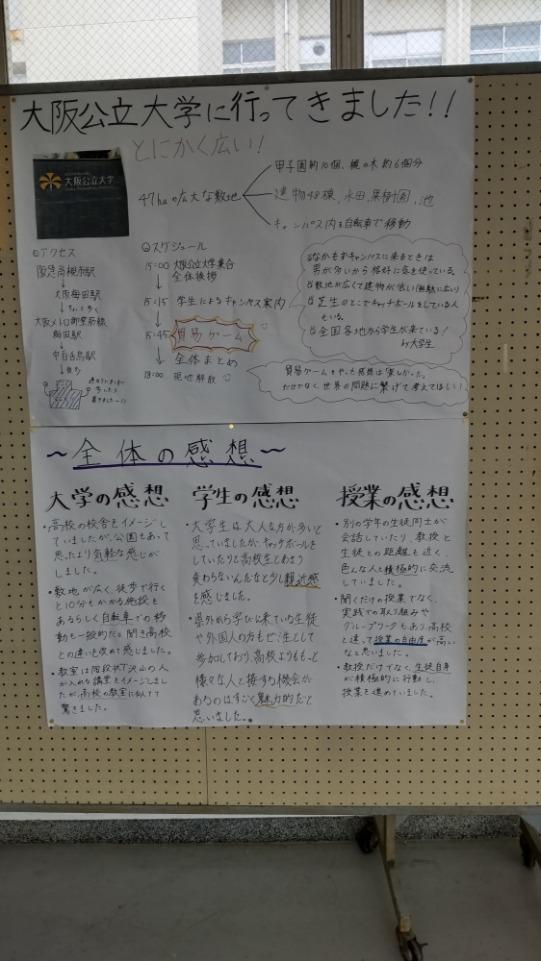 大阪公立大学に行ってきました!!
とにかく広い!
大阪公立大学
47haの広大な敷地
甲子園約
建物48棟、水田、果樹園、池
キャンパス内を自転車で移動
◎アクセス
阪急高槻市駅
↓
大阪梅田駅
↓
大阪メトロ御堂筋線
梅田駅
↓
中百舌鳥駅
↓
◎スケジュール
15:00 大阪公立大学集合
全体挨拶
↓
15:15 学生によるキャンパス案内
↓
15:45 貿易ゲーム
↓
全体まとめ
18:00 現地解散
敷地が広くて建物が
芝生のとこでキャッチボールをしている人
もいる。
全国各地から学生が来ている!
by大学生
貿易ゲームをやった感想は「楽しかった。
だけでなく世界の問題に繋げて考えてほしい!
〜全体の感想〜
大学の感想
・高校の校舎をイメージし
ていましたが、公園もあって
思ったより気軽な感じが
しました。
・敷地が広く、徒歩で行く
と10分もかかる施設も
あるらしく自転車での移
動も一般的だと聞き高校
との違いを改めて感じました。
・教室は階段状で沢山の人
が入れる講堂をイメージしまし
たが、高校の教室に似てて
驚きました。
学生の感想
・大学生は大人な方が多いと
思っていましたが、キャッチボールを
していたりと高校生とあまり
変わらないんだなと少し親近感
を感じました。
・県外から学びに来ている生徒
や外国人の方も学生として
参加しており、高校よりももっと
様々な人と接する機会が
あるのはすごく魅力的だと
思いました。
授業の感想
・別の学年の生徒同士が
会話していたり、教授と
生徒との距離も近く、
色んな人と積極的に交流
していました。
・聞くだけの授業でなく、
実践での取り組みや
グループワークもあり高校
と違って授業の自由度が高い
なと思いました。
・教授だけでなく、生徒自身
が積極的に行動し、
授業を進めていました。